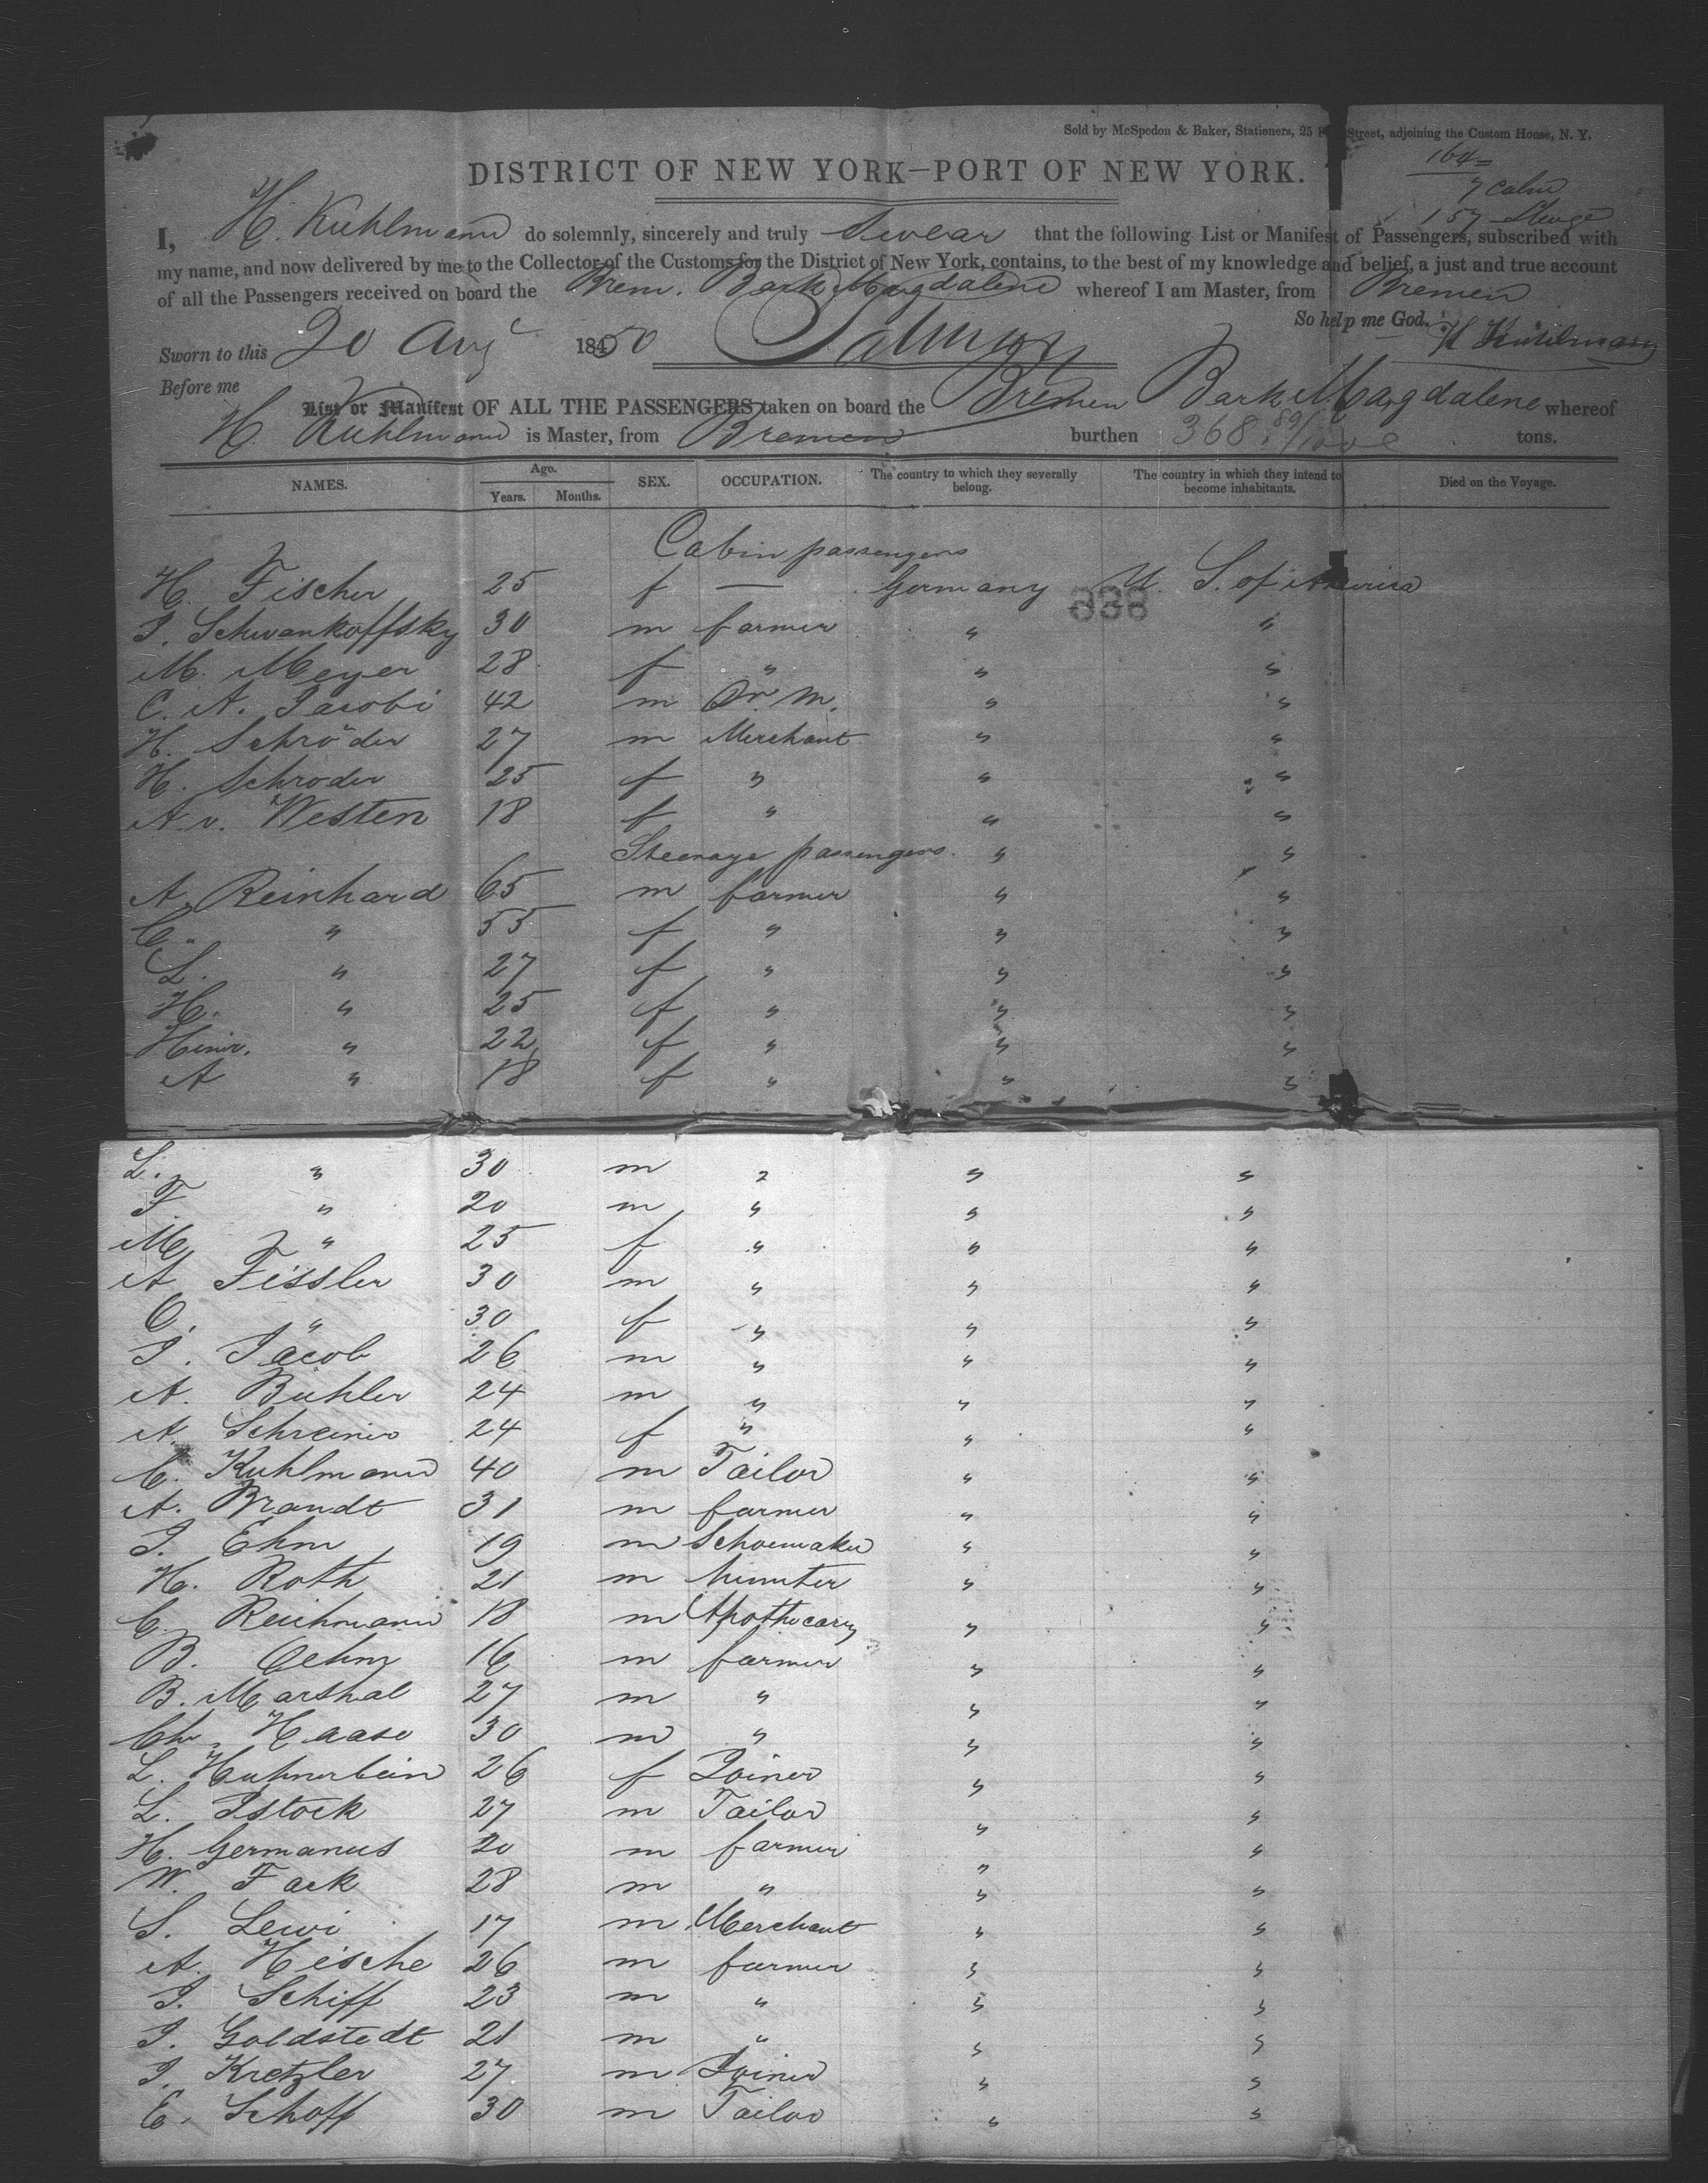 Sold by McSpedon & Baker, Stationers, 25 Street, adjoining the Custom House, N. Y.
164
7 cabin
157 Steerge
DISTRICT OF NEW YORK—PORT OF NEW YORK.
I, H. Kuhlmann do solemnly, sincerely and truly Swear that the following List or Manifest of Passengers, subscribed with
my name, and now delivered by me to the Collector of the Customs for the District of New York, contains, to the best of my knowledge and belief, a just and true account
of all the Passengers received on board the Brem. Bark Magdalene whereof I am Master, from Bremen
So help me God. H Kuhlmann
Sworn to this 20 Aug 1850
Before me
List or Manifest OF ALL THE PASSENGERS taken on board the Bremen Bark Magdalene whereof
H. Kuhlmann is Master, from Bremen burthen 368 89/100 tons.
NAMES. Age. Years. Months. SEX. OCCUPATION. The country to which they severally belong. The country in which they intend to become inhabitants. Died on the Voyage.
Cabin passengers
H. Fischer 25 f — Germany U. S. of America
338
J. Schwankoffsky 30 m farmer " "
M. Meyer 28 f " " "
C. A. Jacobi 42 m Dr. M. " "
H. Schröder 27 m Merchant " "
H. Schroder 25 f " " "
A. v. Westen 18 f " " "
Steerage passengers. " "
A. Reinhard 65 m farmer " "
C. " 55 f " " "
L. " 27 f " " "
H. " 25 f " " "
Hinr. " 22 f " " "
A " 18 f " " "
L. " 30 m " " "
F. " 20 m " " "
M. " 25 f " " "
A Fissler 30 m " " "
C. " 30 f " " "
J. Jacob 26 m " " "
A. Buhler 24 m " " "
A. 24 f " " "
C. Kuhlmann 40 m Tailor " "
A. Brandt 31 m farmer " "
J. Ehm 19 m Schoemaker " "
H. Roth 21 m " "
C. Reichmann 18 m Apothecary " "
B. Oehm 16 m farmer " "
B. Marshal 27 m " " "
Ch. Haase 30 m " " "
L. Huhnerbein 26 f Joiner " "
L. Istock 27 m Tailor " "
H. Germanus 20 m farmer " "
W. Fack 28 m " " "
S. Lewi 17 m Merchant " "
A. Heische 26 m farmer " "
J. Schiff 23 m " " "
J. Goldstedt 21 m " " "
J. Kretzler 27 m Joiner " "
E. Schoff 30 m Tailor " "